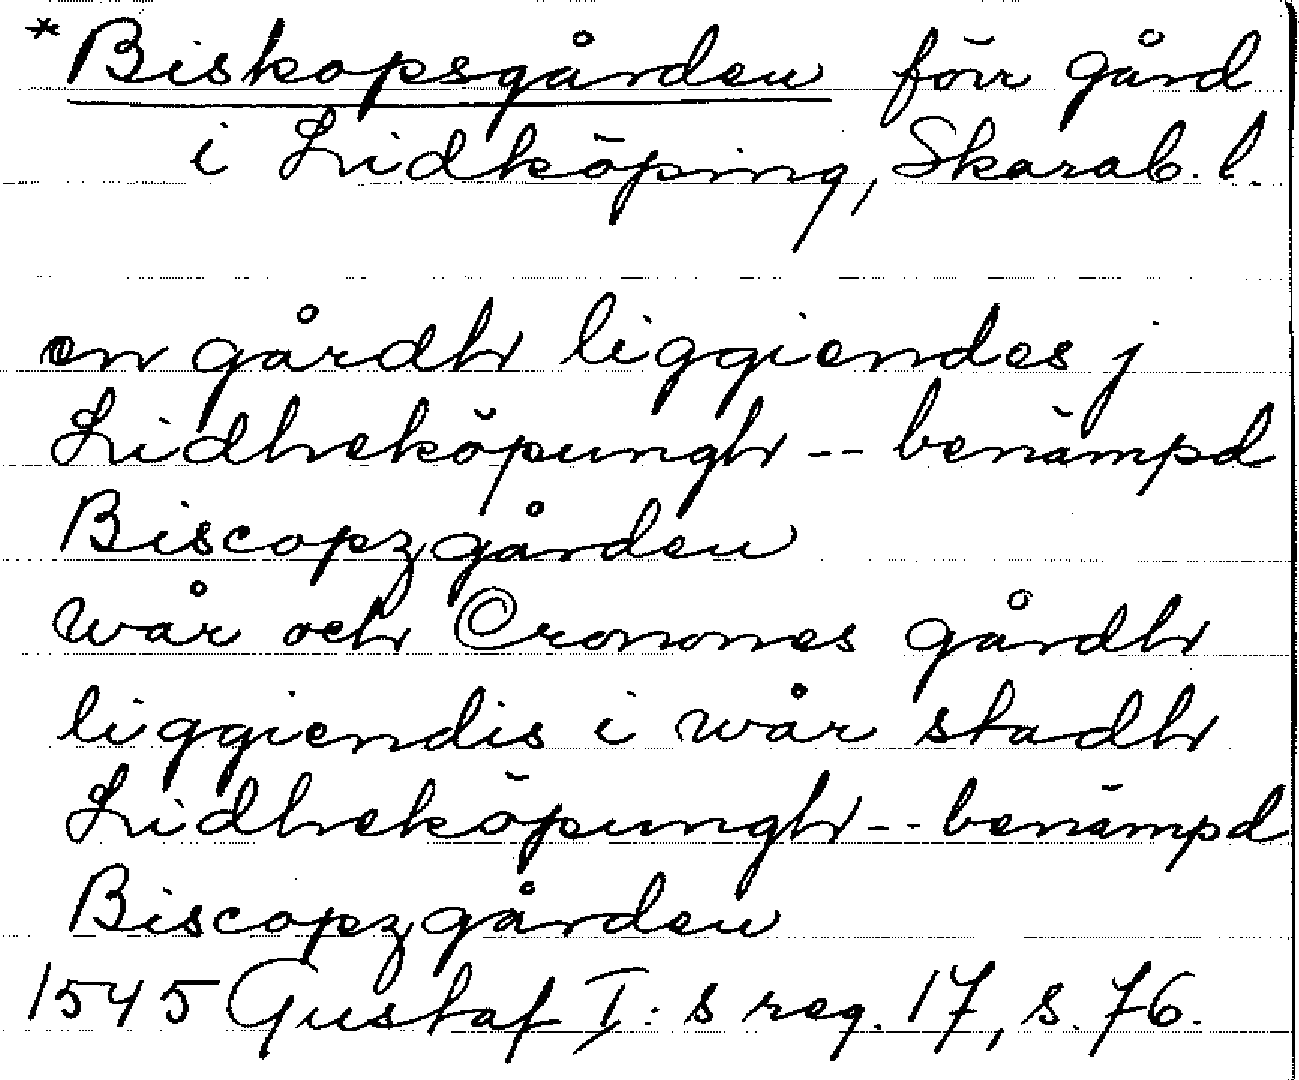 *Biskopsgården förr gård
i Lidköping, Skarab. l.
en gårdh liggiendes j
Lidheköpungh -- benämpd
Biscopzgården
wår och Cronones gårdh
liggiendis i wår stadh
Lidheköpungh -- benämpd
Biscopzgården
1545 Gustaf I:s reg. 17, s. 76.